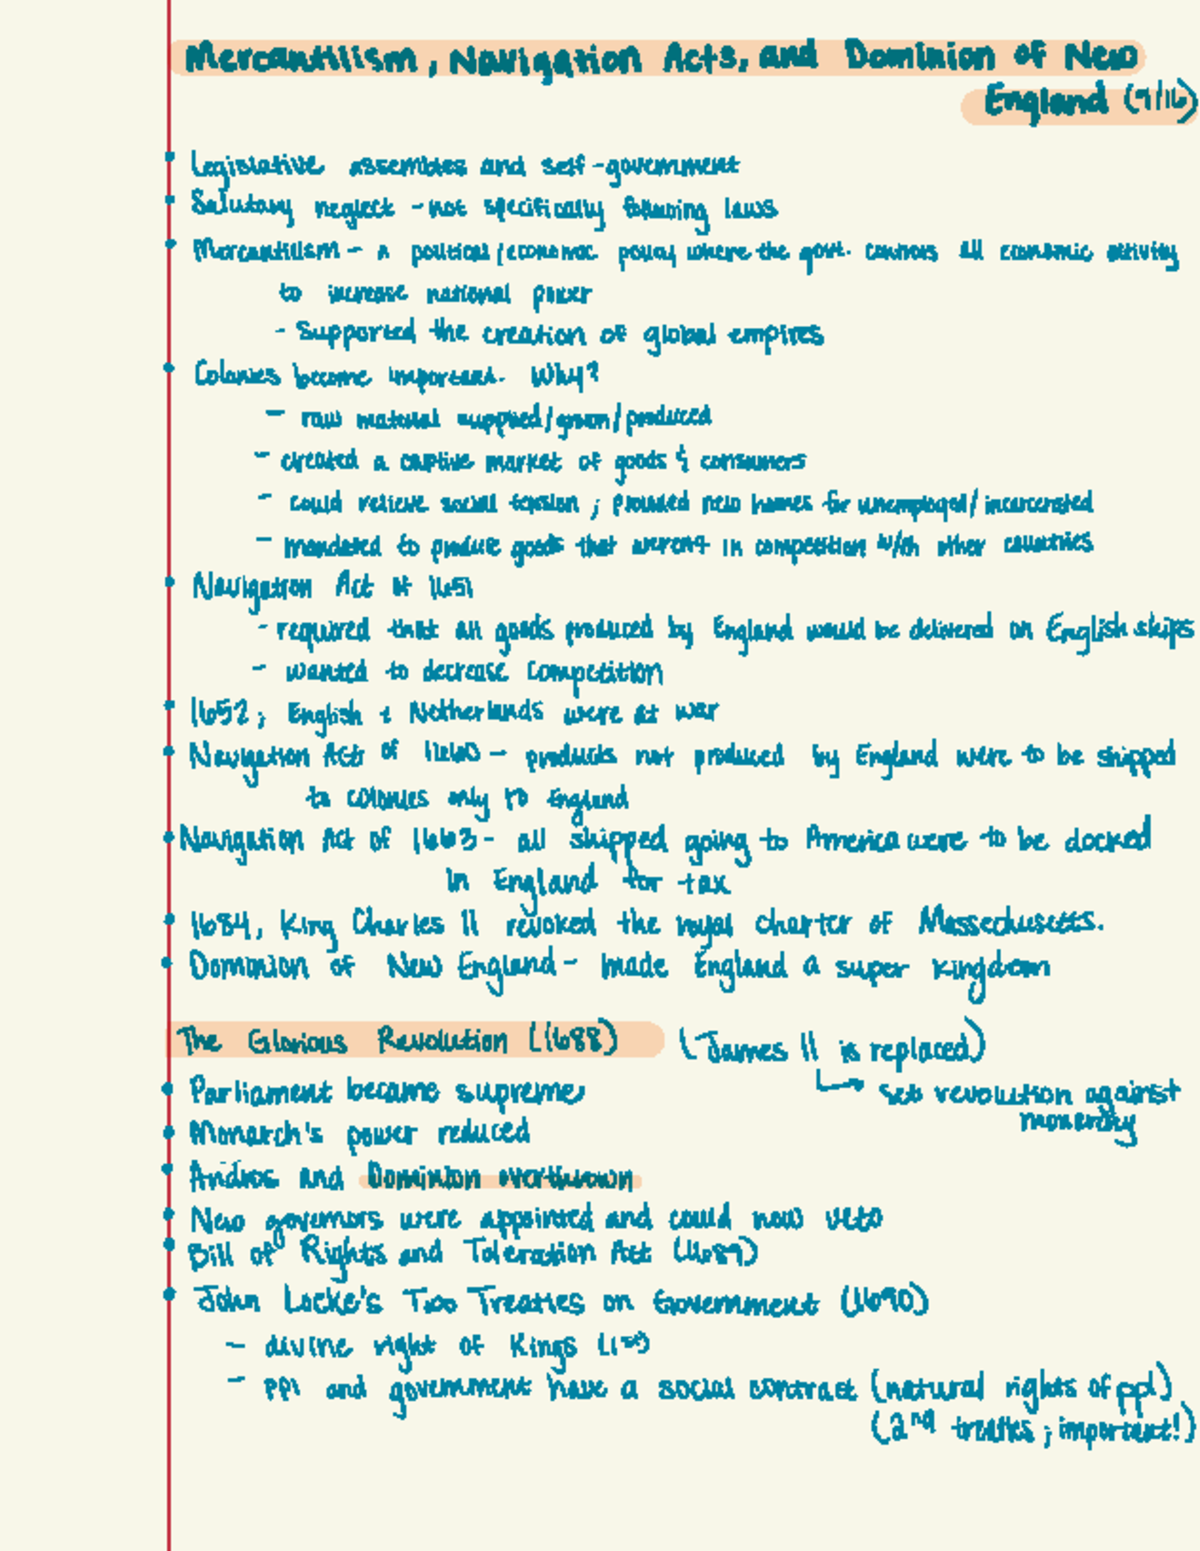 Mercantilism, Navigation Acts, and Dominion of New
England (9/16)
• Legislative assemblies and self-government
• Salutary neglect - not specifically following laws
• Mercantilism - a political/economic policy where the govt. controls all economic activity
to increase national power
- Supported the creation of global empires
• Colonies become important. Why?
- raw material supplied/grown/produced
- created a captive market of goods & consumers
- could relieve social tension; provided new homes for unemployed/incarcerated
- mandated to produce goods that weren't in competition w/ other countries
• Navigation Act of 1651
- required that all goods produced by England would be delivered on English ships
- wanted to decrease competition
• 1652; English & Netherlands were at war
• Navigation Act of 1660 - products not produced by England were to be shipped
to colonies only to England
• Navigation Act of 1663 - all shipped going to America were to be docked
in England for tax
• 1684, King Charles II revoked the royal charter of Massechusetts.
• Dominion of New England - made England a super kingdom
The Glorious Revolution (1688) (James II is replaced)
• Parliament became supreme
→ set revolution against
monarchy
• Monarch's power reduced
• Andros and Dominion overthrown
• New governors were appointed and could now veto
• Bill of Rights and Toleration Act (1689)
• John Locke's Two Treaties on Government (1690)
- divine right of Kings (1st)
- ppl and government have a social contract (natural rights of ppl)
(2nd treaties; important!)